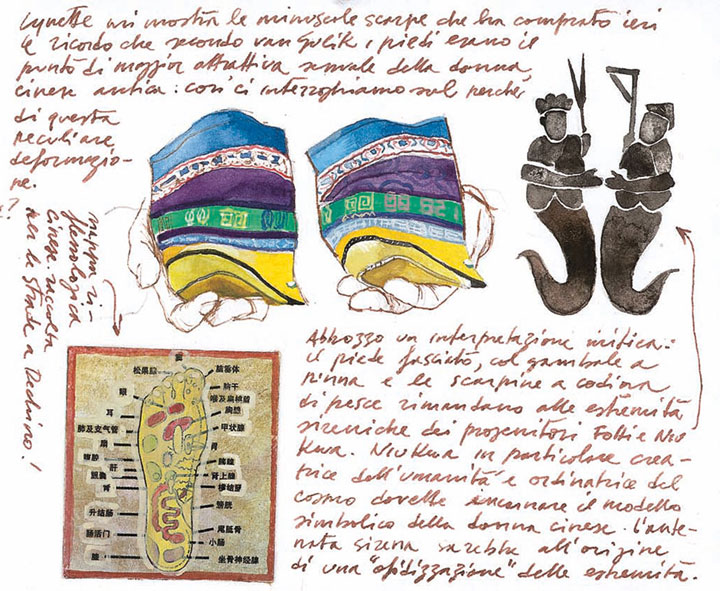 Lynette mi mostra le minuscole scarpe che ha comprato ieri
e ricordo che secondo van Gulik, i piedi erano il
punto di maggior attrattiva sessuale della donna
cinese antica: così ci interroghiamo sul perché
di questa
peculiare
deformazio-
ne.
?
mappa ri-
flessologica
cinese raccolta
per le strade a Pechino!
松果腺
眼
耳
肺及支气管
肩
肝
肾
升结肠
肠活门
喉及扁桃腺
甲状腺
胃
肾上腺
膀胱
尾骶骨
小肠
坐骨神经腺
Abbozzo un interpretazione mitica:
il piede fasciato, col gambale a
pinna e le scarpine a codina
di pesce rimandano alle estremità
sireniche dei progenitori Fohi e Niu
Kwa. Niu Kwa in particolare crea-
trice dell'umanità e ordinatrice del
cosmo dovette incarnare il modello
simbolico della donna cinese. L'ante-
nata sirena sarebbe all'origine
di una "ofidizzazione" delle estremità.